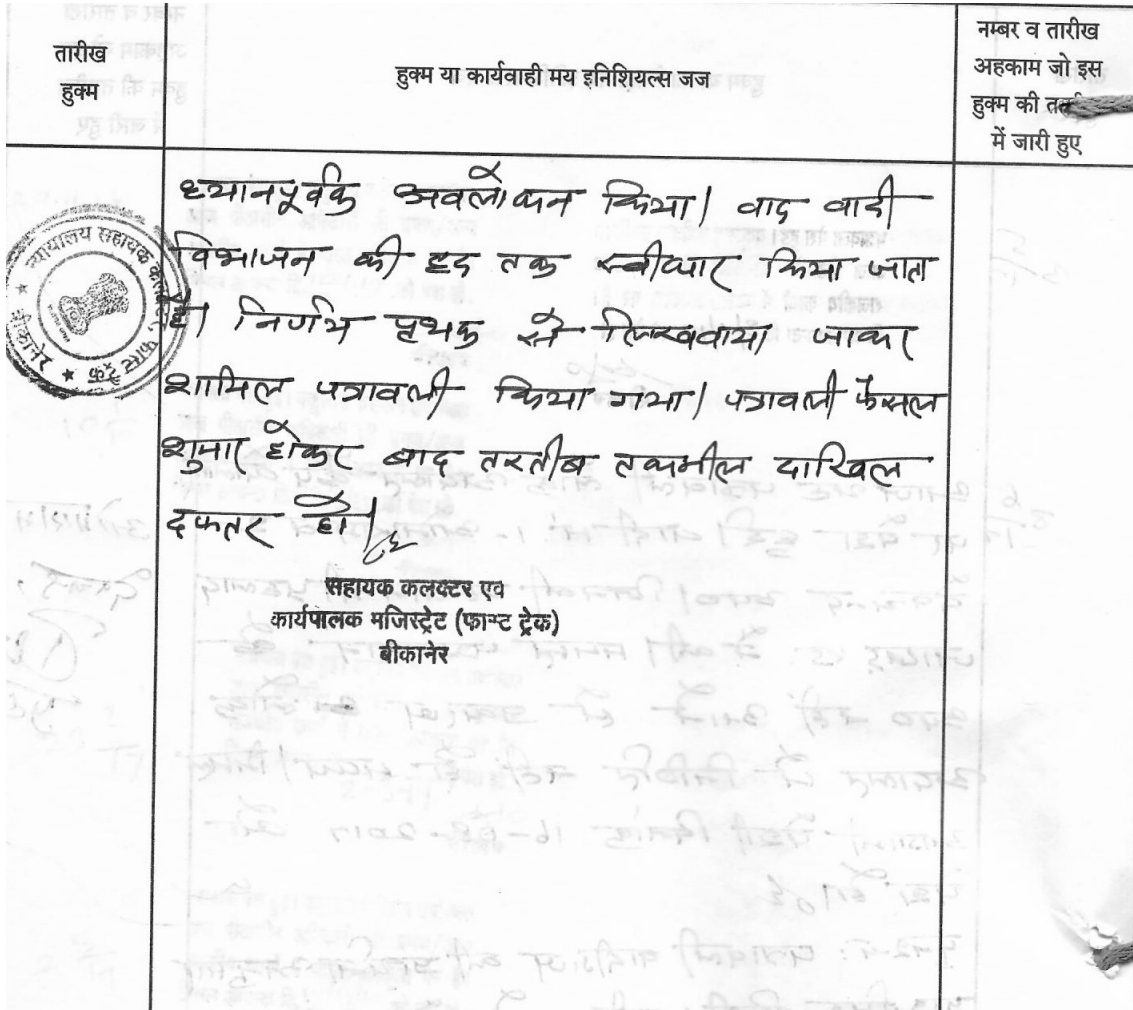 तारीख
हुक्म
हुक्म या कार्यवाही मय इनिशियल्स जज
नम्बर व तारीख
अहकाम जो इस
हुक्म की
में जारी हुए
ध्यानपूर्वक अवलोकन किया। वाद वादी
विभाजन की हद तक स्वीकार किया जाता
है। निर्णय पृथक से लिखवाया जाकर
शामिल पत्रावली किया गया। पत्रावली फैसल
शुमार होकर बाद तरतीब तकमील दाखिल
दफ्तर हो।
सहायक कलक्टर एव
कार्यपालक मजिस्ट्रेट (फास्ट ट्रेक)
बीकानेर
न्यायालय सहायक कलक्टर, फास्ट ट्रैक
बीकानेर